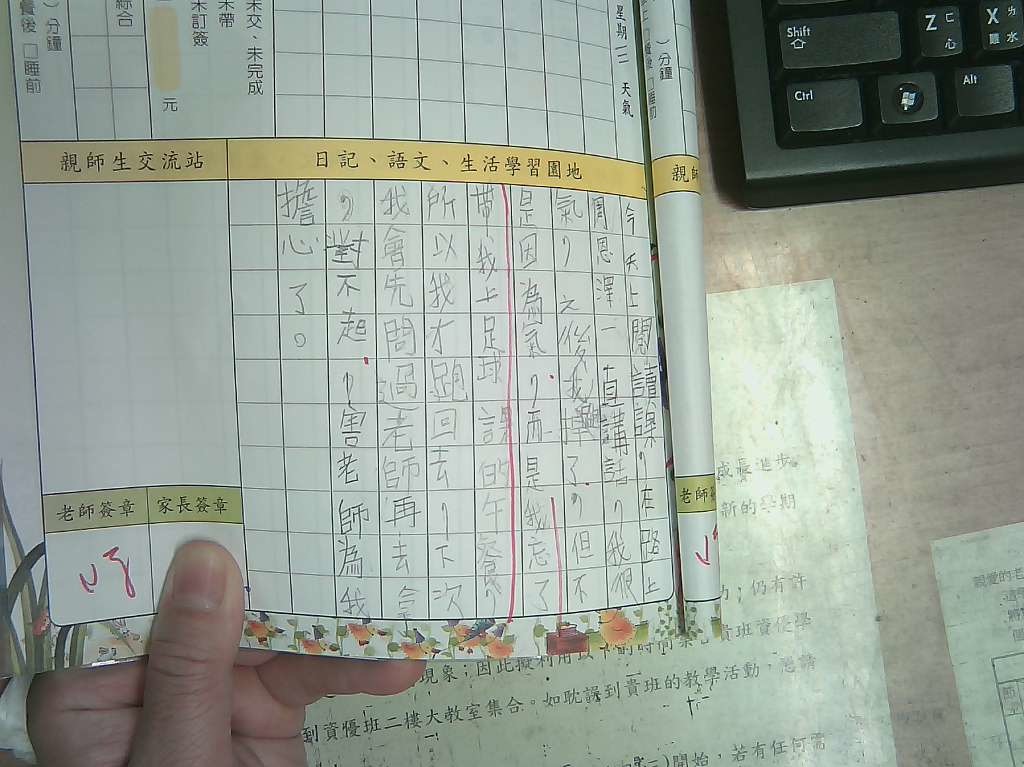 星期二 天氣
親師生交流站
日記、語文、生活學習園地
今天上閱讀課,在路上
周恩澤一直講話,我很
氣,之後我揮了,但不
是因為氣,而是我忘了
帶我上足球課的午餐,
所以我才跑回去,下次
我會先問過老師再去拿
,對不起,害老師為我
擔心了。
老師簽章
家長簽章
未交、未完成
未帶
未訂簽
元
綜合
)分鐘
餐後 □睡前
親師
老師簽
Shift
Z ㄈ
心
X ㄌ
難 水
Ctrl
Alt
成長進步。
新的學期
仍有許
現象,因此擬利用以下的時間集
貴班資優學
到資優班二樓大教室集合。如耽誤到貴班的教學活動,懇請
)開始,若有任何需
親愛的老